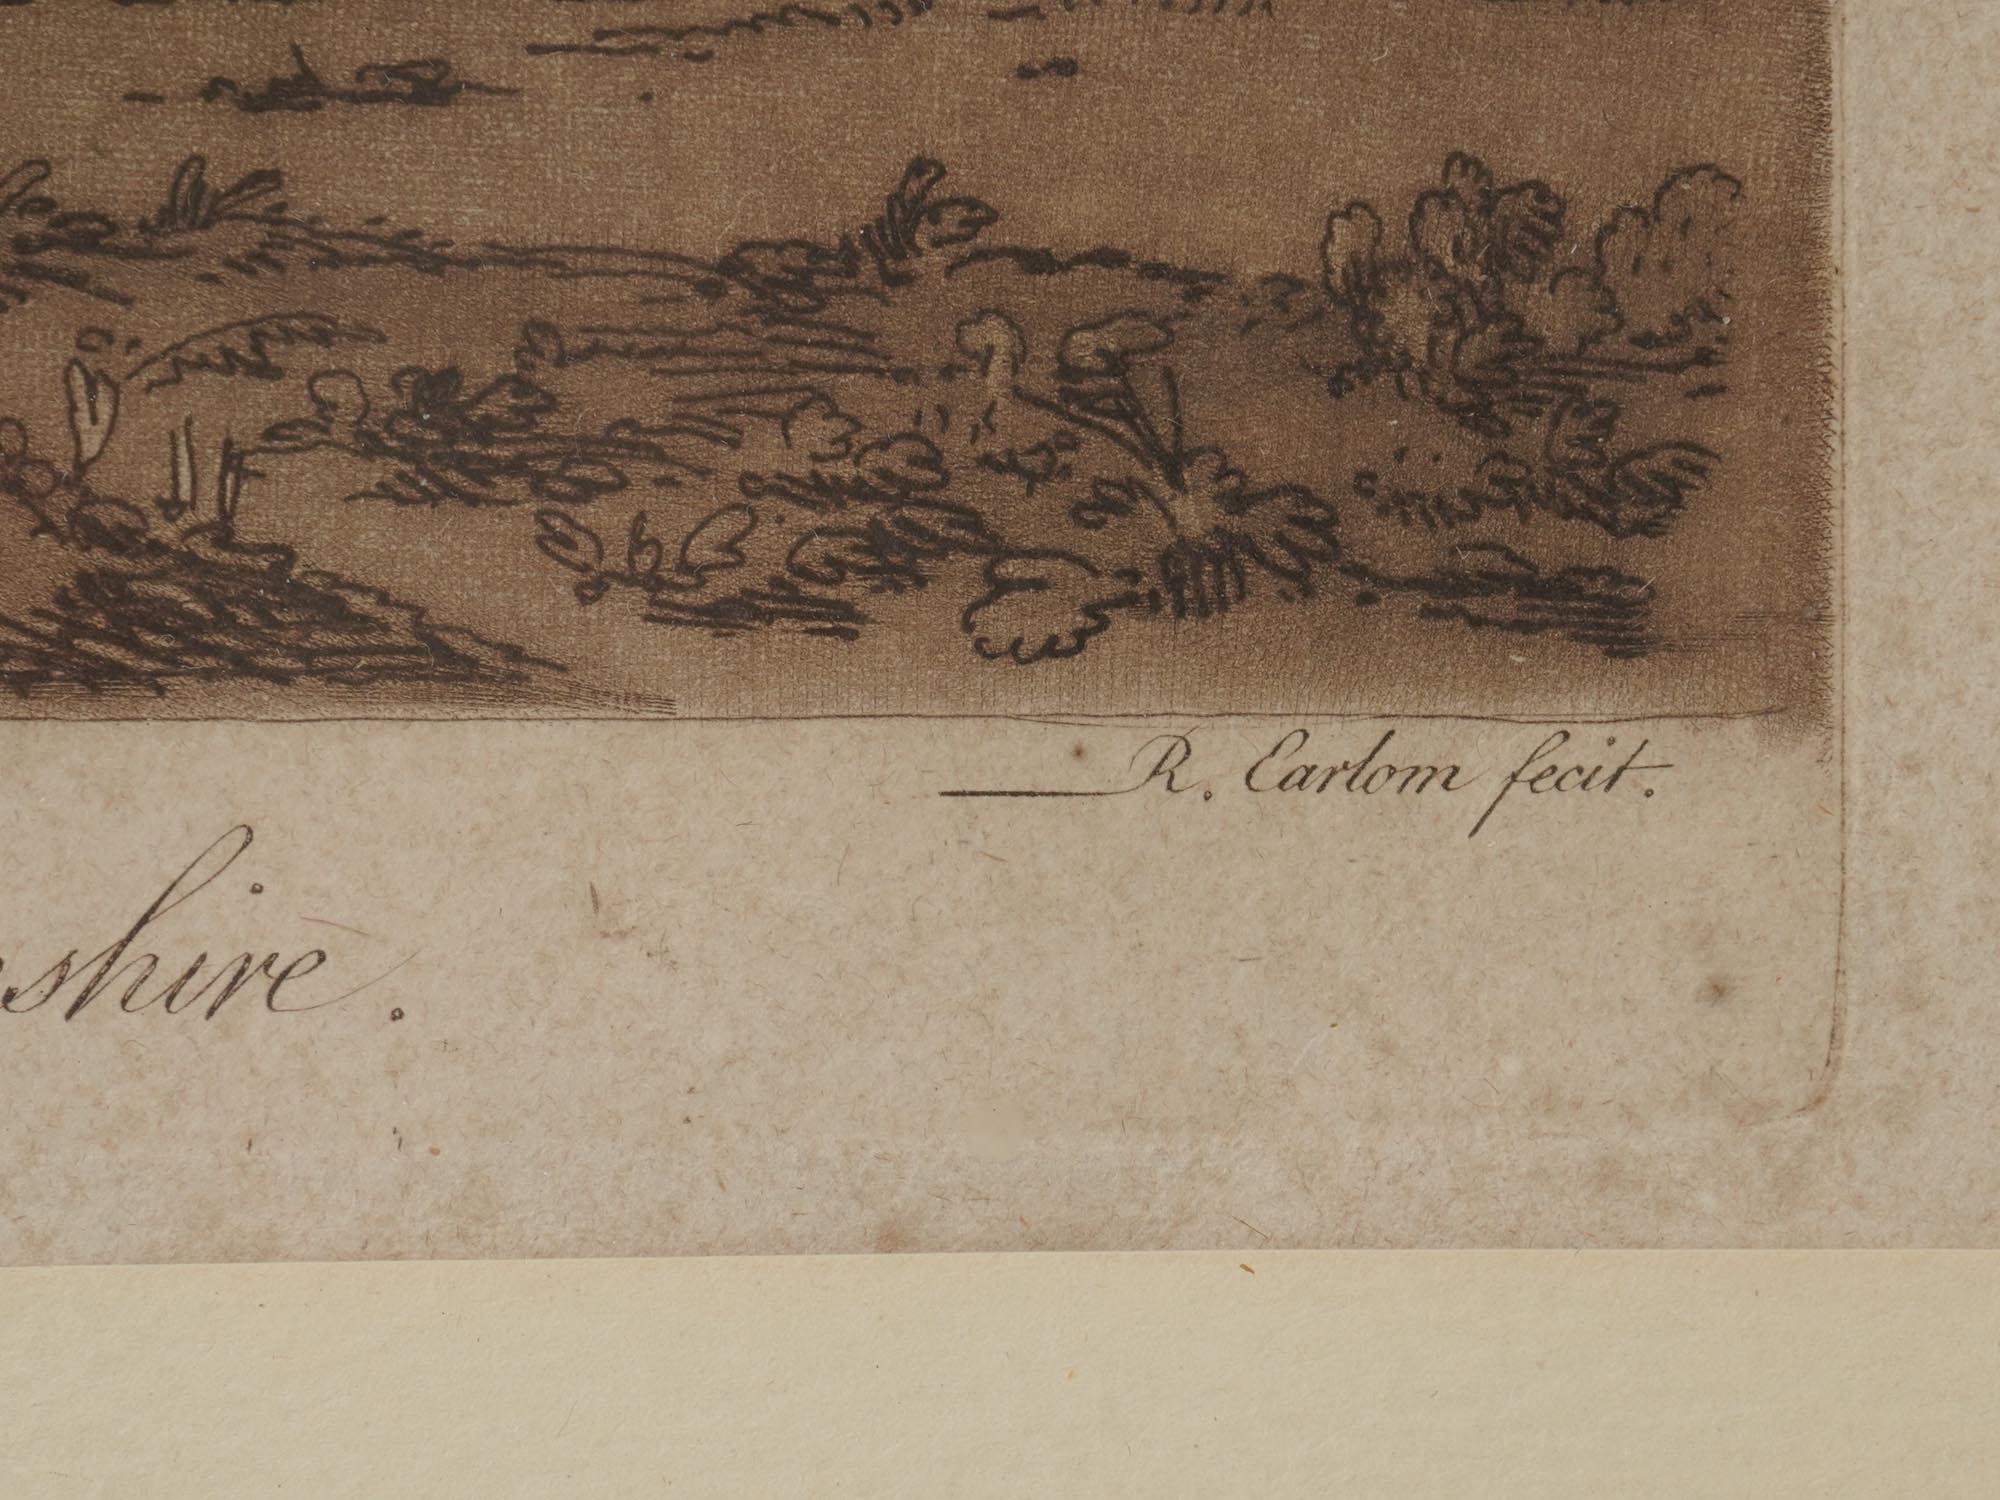 R. Earlom fecit.
shire.